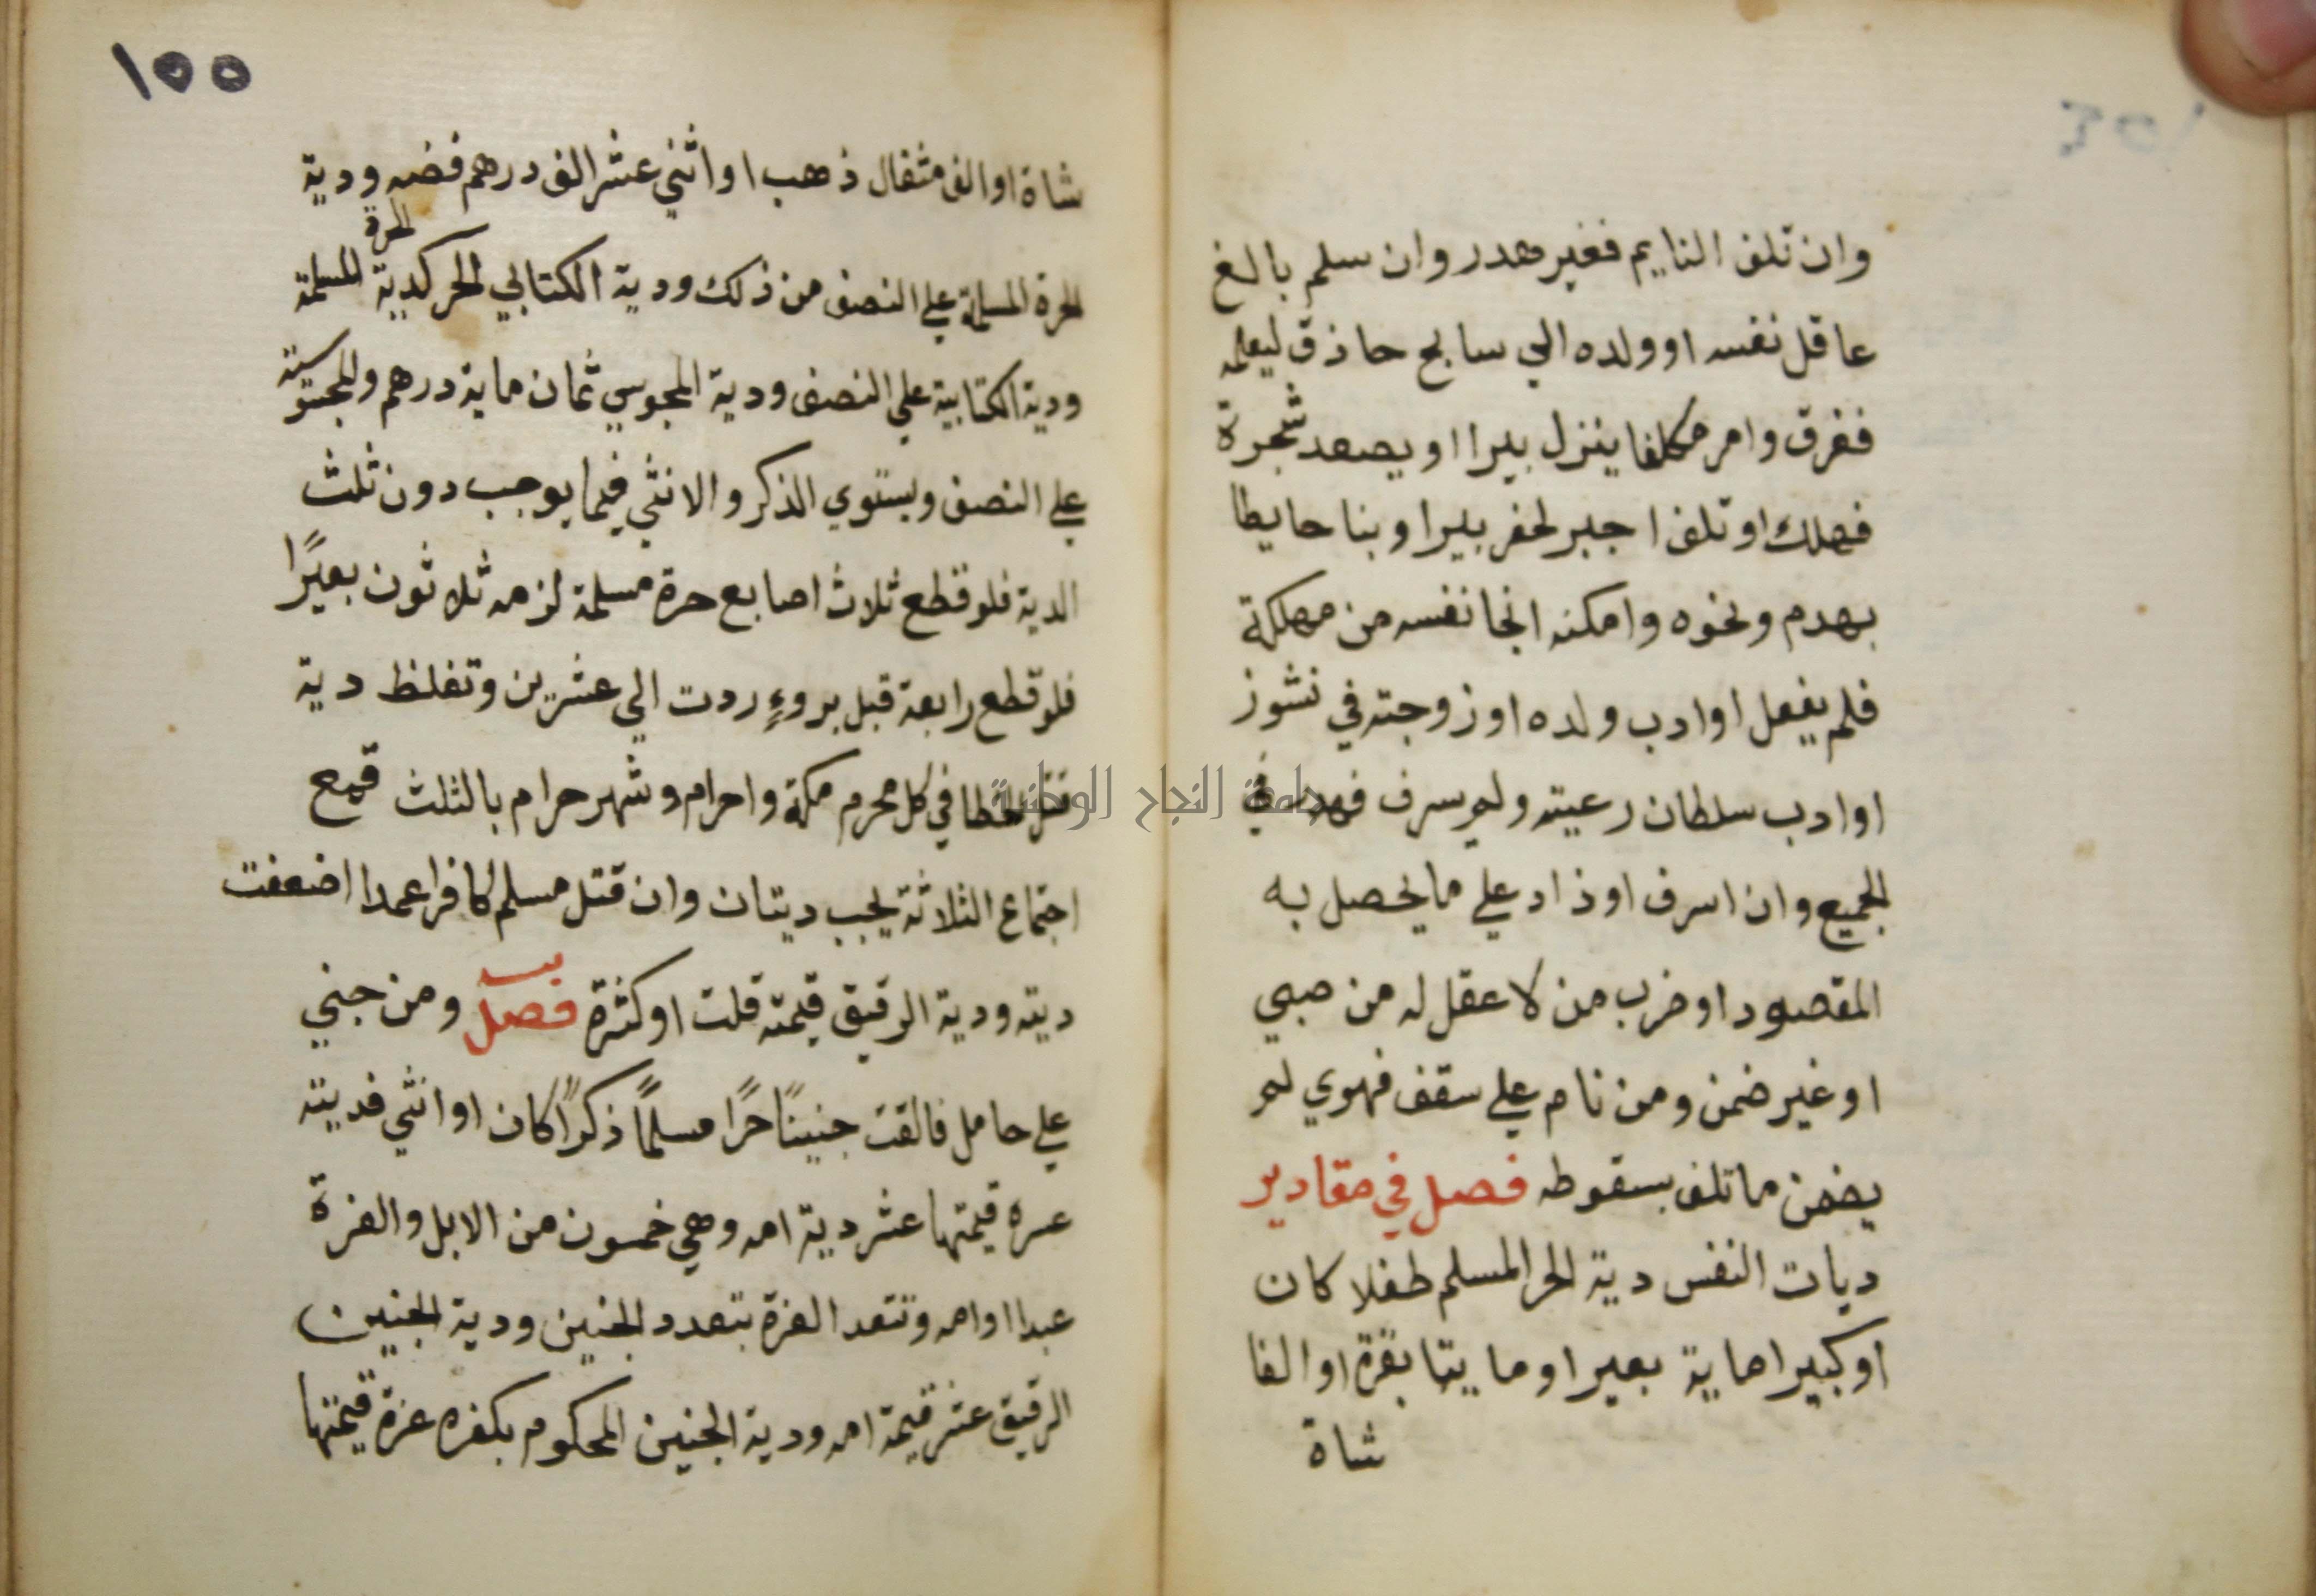 وان تلف النايم فغير هدر وان سلم بالغ
عاقل نفسه او ولده الي سابح حاذق ليعلمه
فغرق وامر مكلفا ينزل بيرا او يصعد شجرة
فهلك او تلف اجير لحفر بيرا و بنا حايطا
بهدم ونحوه وامكنه انجا نفسه من مهلكة
فلم يفعل او ادب ولده او زوجته في نشوز
او ادب سلطان رعيته ولم يسرف فهدر في
الجميع وان اسرف او زاد علي ما يحصل به
المقصود او ضرب من لا عقل له من صبي
او غير ضمن ومن نام علي سقف فهوي لم
يضمن ما تلف بسقوطه فصل في مقادير
ديات النفس دية الحر المسلم طفلا كان
او كبيرا ماية بعير او مايتا بقرة او الفا
شاة
١٥٥
شاة او الف مثقال ذهب او اثني عشر الف درهم فضه ودية
الحرة المسلمة علي النصف من ذلك ودية الكتابي الحر كدية الحرة المسلمة
ودية الكتابية علي النصف ودية المجوسي ثمان ماية درهم والمجوسية
علي النصف ويستوي الذكر والانثي فيما يوجب دون ثلث
الدية فلو قطع ثلاث اصابع حرة مسلمة لزمه ثلاثون بعيرًا
فلو قطع رابعة قبل بروءٍ ردت الي عشرين وتغلظ دية
قتل الخطا في كل محرم مكة واحرام وشهر حرام بالثلث فمع
اجتماع الثلاثة يجب ديتان وان قتل مسلم كافرا عمدا اضعفت
ديته ودية الرقيق قيمته قلت او كثرة فصل ومن جني
علي حامل فالقت جنينًا حرًا مسلمًا ذكرًا كان او انثي فديته
عره قيمتها عشر دية امه وهي خمسون من الابل والغرة
عبدا او امه وتتعد الغرة بتعدد الجنين ودية الجنين
الرقيق عشر قيمة امه ودية الجنين المحكوم بكفره غرة قيمتها
جامعة النجاح الوطنية